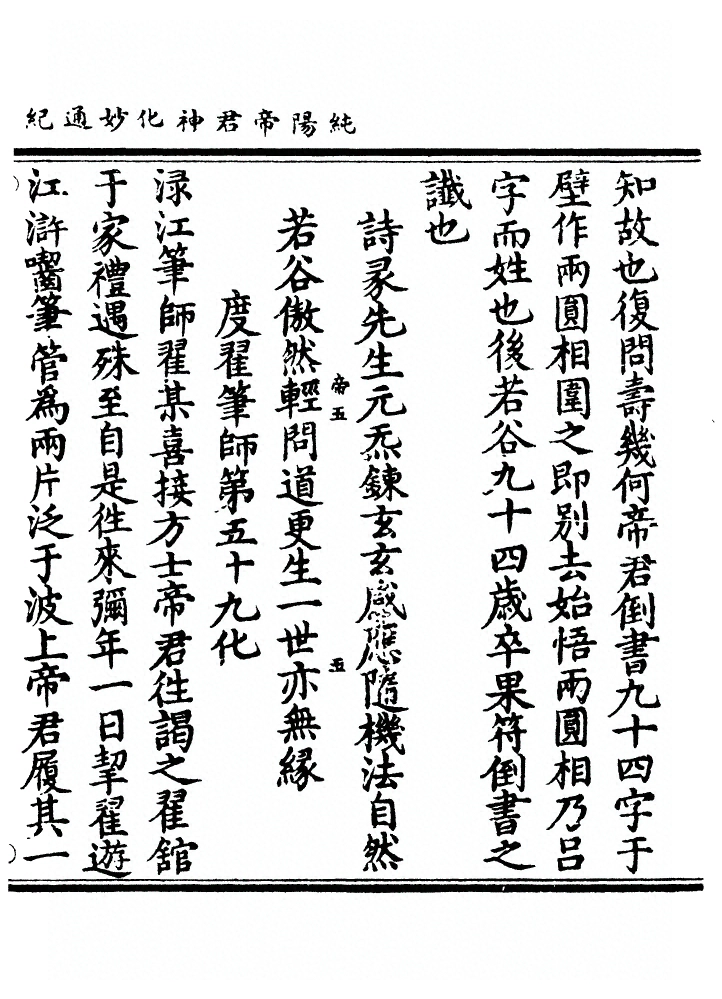 純陽帝君神化妙通紀
知故也復問壽幾何帝君倒書九十四字于
壁作兩圓相圍之即别去始悟兩圓相乃吕
字而姓也後若谷九十四歳卒果符倒書之
讖也
詩豕先生元炁鍊玄玄咸應隨機法自然
帝五
五
若谷傲然輕問道更生一世亦無緣
度翟筆師第五十九化
渌江筆師翟某喜接方士帝君徃謁之翟舘
于家禮遇殊至自是徃來彌年一日挈翟遊
江滸嚙筆管為兩片泛于波上帝君履其一